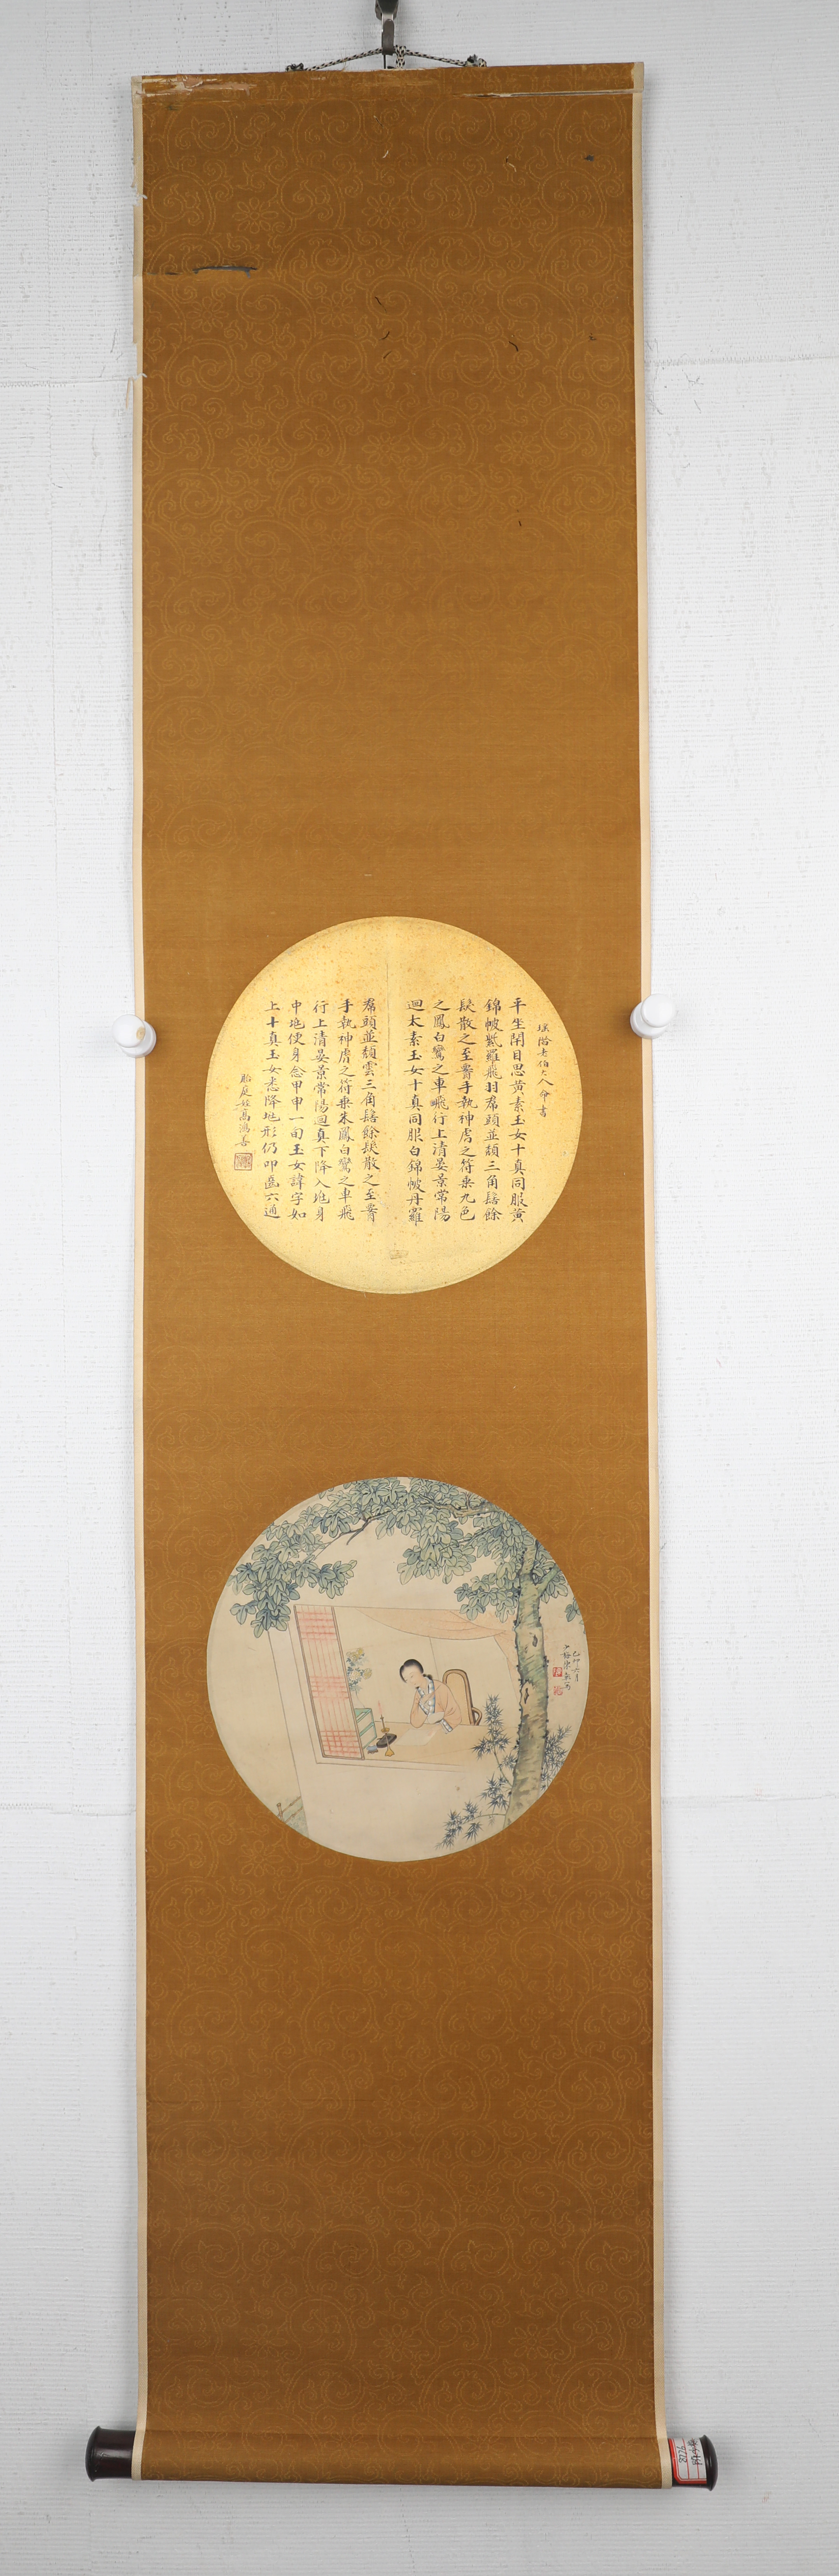 平坐閉目思黃素玉女十真同服黃
錦帔紫羅飛羽帬頭並頹三角髻餘
髮散之至胷手執神虎之符乗九色
之鳳白鸞之車飛行上清晏景常陽
迴太素玉女十真同服白錦帔丹羅
帬頭並頹雲三角髻餘髮散之至胷
手執神虎之符乗朱鳳白鸞之車飛
行上清晏景常陽迴真下降入地身
中地便身念甲申一旬玉女諱字如
上十真玉女悉降地形仍叩齒六通
高鴻善